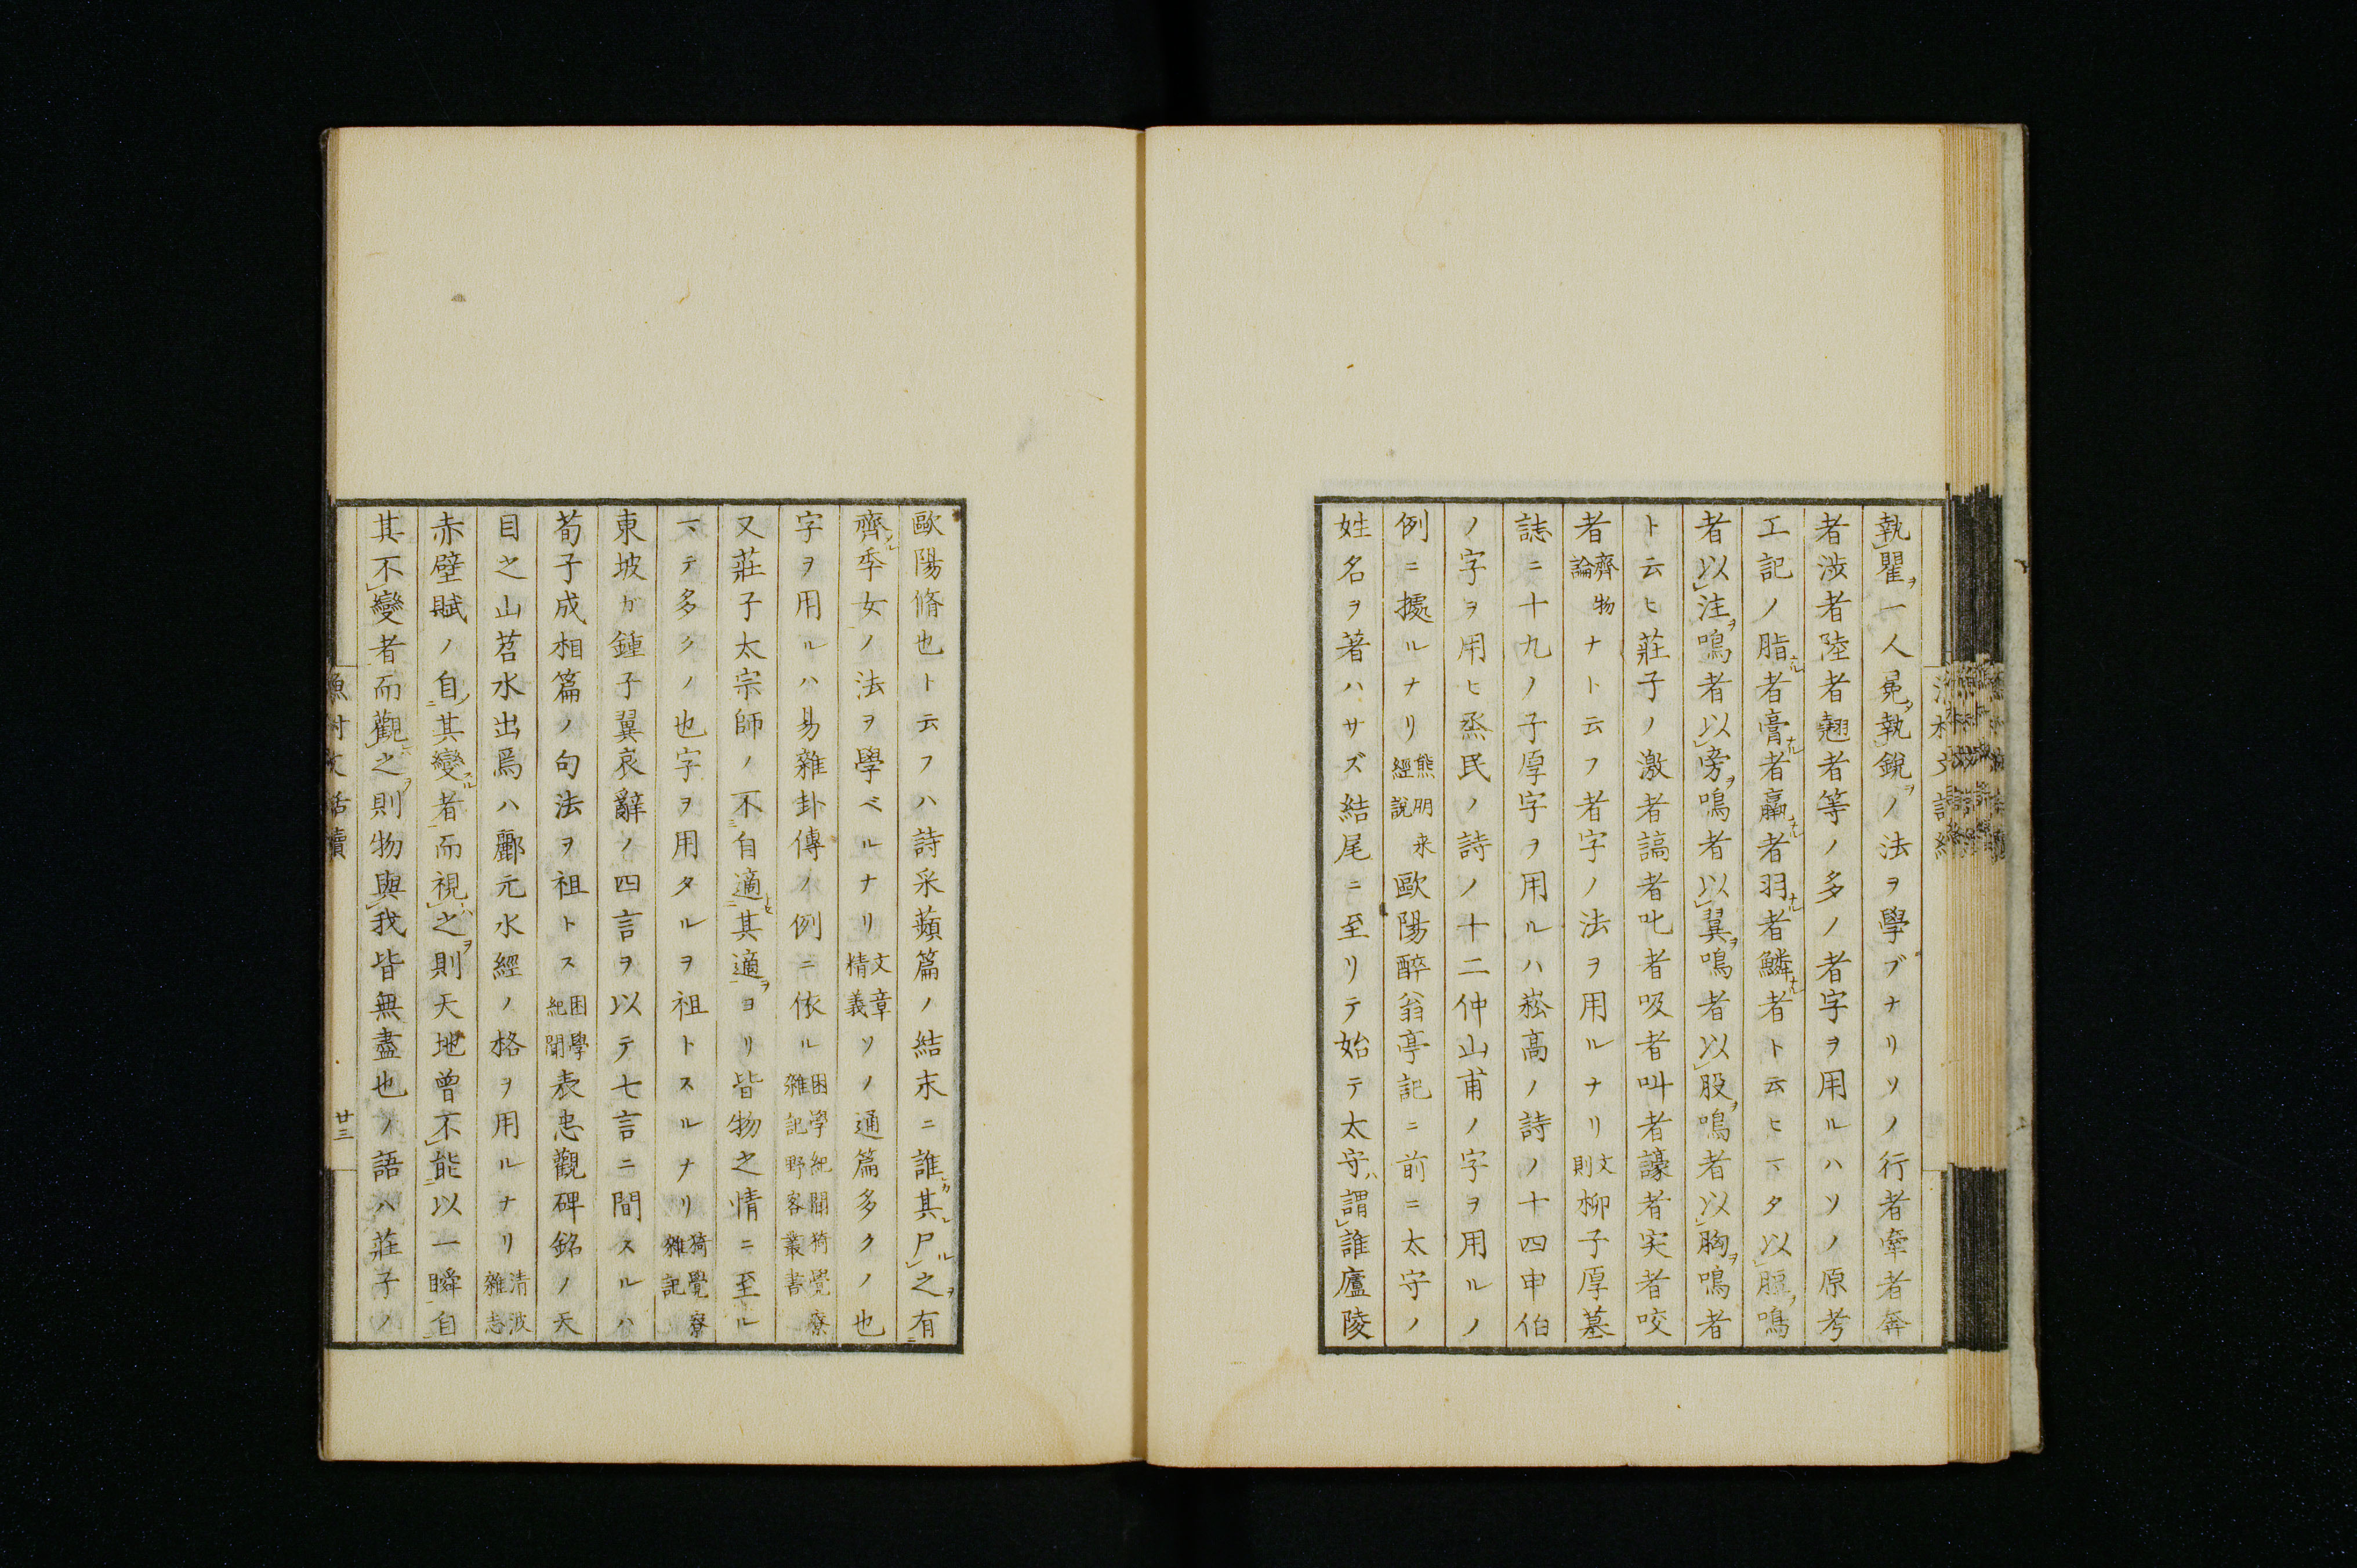 執瞿一人冕執鋭ノ法ヲ學ブナリソノ行者牽者奔
者渉者陸者翹者等ノ多ノ者字ヲ用ルハソノ原考
工記ノ脂者膏者臝者羽者鱗者ト云ヒマタ以脰鳴
者以注鳴者以旁鳴者以翼鳴者以股鳴者以胸鳴者
ト云ヒ莊子ノ激者謞者叱者吸者叫者譹者宎者咬
者齊物論ナト云フ者字ノ法ヲ用ルナリ文則柳子厚墓
誌ニ十九ノ子厚字ヲ用ルハ崧高ノ詩ノ十四申伯
ノ字ヲ用ヒ烝民ノ詩ノ十二仲山甫ノ字ヲ用ルノ
例ニ據ルナリ熊朋來經說歐陽醉翁亭記ニ前ニ太守ノ
姓名ヲ著ハサズ結尾ニ至リテ始テ太守謂誰廬陵
歐陽脩也ト云フハ詩采蘋篇ノ結末ニ誰其尸之有
齊季女ノ法ヲ學ベルナリ文章精義ソノ通篇多クノ也
字ヲ用ルハ易雜卦傳ノ例ニ依ル困學紀聞猗覺寮雜記野客叢書
又莊子太宗師ノ不自適其適ヨリ皆物之情ニ至ル
マテ多クノ也字ヲ用タルヲ祖トスルナリ猗覺寮雜記
東坡ガ鍾子翼哀辭ノ四言ヲ以テ七言ニ間スルハ
荀子成相篇ノ句法ヲ祖トス困學紀聞表忠觀碑銘ノ天
目之山苕水出焉ハ酈元水經ノ格ヲ用ルナリ清波雜志
赤壁賦ノ自其變者而視之則天地曾不能以一瞬自
其不變者而觀之則物與我皆無盡也ノ語ハ莊子ノ
漁村文話續
廿三